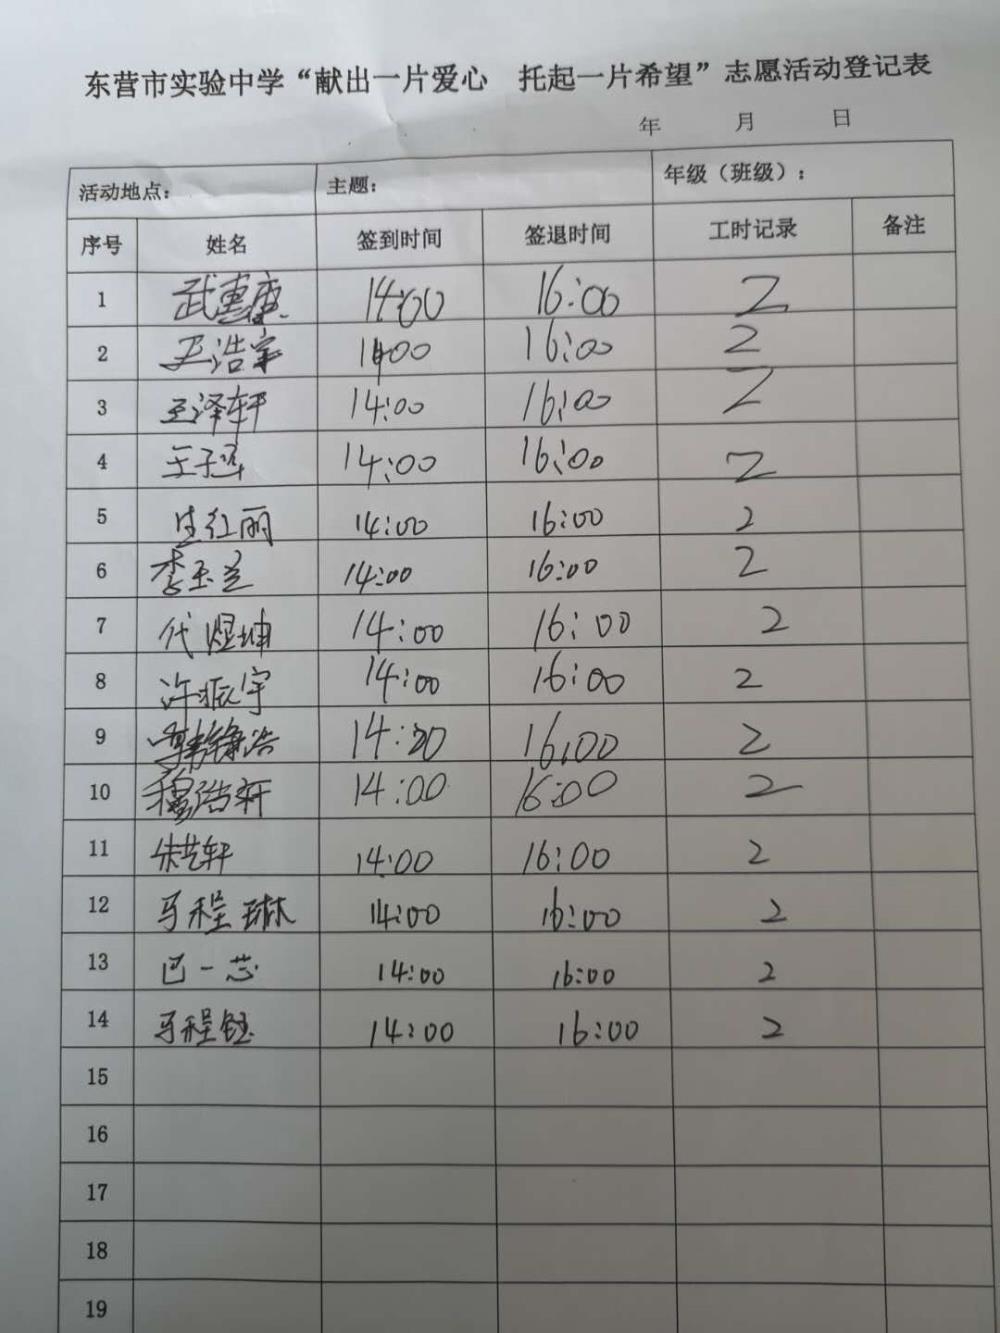 东营市实验中学“献出一片爱心 托起一片希望”志愿活动登记表
年 月 日
活动地点: 主题: 年级（班级）:
序号 姓名 签到时间 签退时间 工时记录 备注
1 武惠康 14:00 16:00 2
2 王浩宇 14:00 16:00 2
3 王泽轩 14:00 16:00 2
4 王子 14:00 16:00 2
5 红丽 14:00 16:00 2
6 李玉兰 14:00 16:00 2
7 代煜坤 14:00 16:00 2
8 许振宇 14:00 16:00 2
9 浩 14: 16:00 2
10 程浩轩 14:00 16:00 2
11 朱艺轩 14:00 16:00 2
12 马程琳 14:00 16:00 2
13 巴一芯 14:00 16:00 2
14 马程钰 14:00 16:00 2
15
16
17
18
19